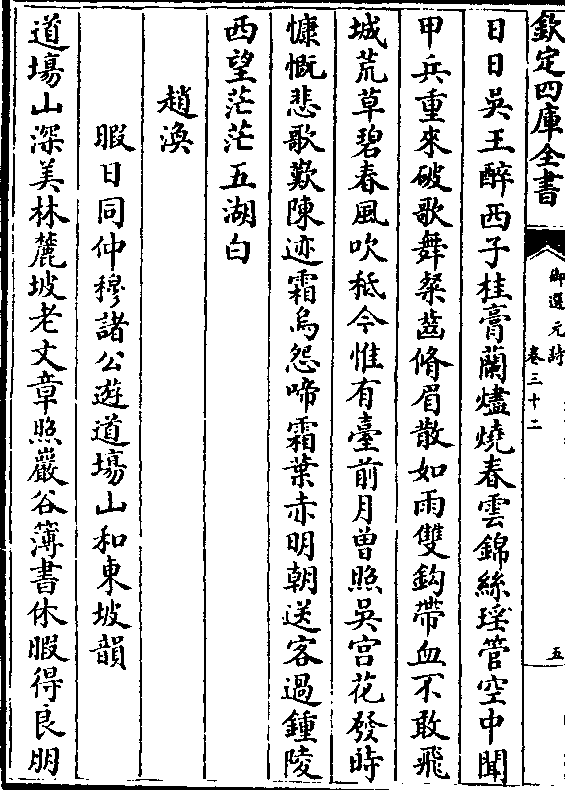 欽定四庫全書
御選元詩
卷三十二
五
日日吳王醉西子桂膏蘭燼燒春雲錦絲瑤管空中聞
甲兵重來破歌舞粲齒脩眉散如雨雙鈎帶血不敢飛
城荒草碧春風吹秪今惟有臺前月曾照吳宫花發時
慷慨悲歌歎陳迹霜烏怨啼霜葉赤明朝送客過鍾陵
西望茫茫五湖白
趙渙
暇日同仲穆諸公遊道塲山和東坡韻
道塲山深美林麓坡老文章照巖谷簿書休暇得良朋